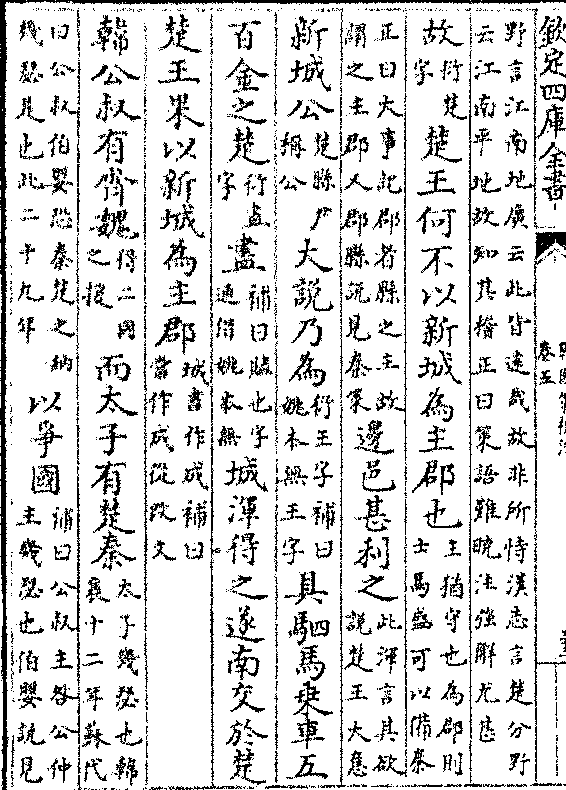 欽定四庫全書
卷五
野言江南地廣云此皆達哉故非所恃漢志言楚分野
云江南平地故知其楷正曰策語雖晚注強解尤甚
故衍楚字楚王何不以新城為主郡也主猶守也為郡則士馬盛可以備秦
正曰大事記郡者縣之主故謂之主郡人郡縣説見秦策邊邑甚利之此渾言其欲説楚王大意
新城公楚縣尹稱公大説乃為衍王字補曰姚本無王字具駟馬乗車五
百金之楚衍盡字盡補曰贐也字通借姚本無城渾得之遂南交於楚
楚王果以新城為主郡城書作成補曰當作成從改文
韓公叔有齊魏得二國之援而太子有楚秦太子幾瑟也韓襄十二年蘇代
曰公叔伯嬰恐秦楚之納幾瑟是也此二十九年以爭國補曰公叔主咎公仲主幾瑟也伯嬰説見